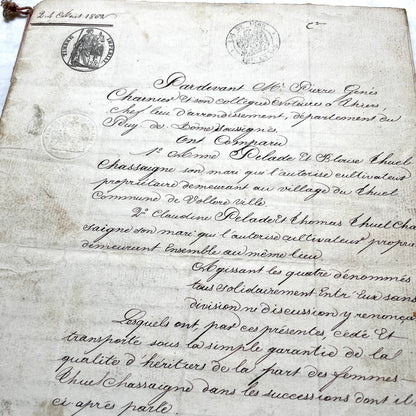 24 Aout 1862
TIMBRE IMPERIAL
Pardevant Me. Pierre Genès
Charnier et son collègue Notaires à Thiers
chef lieu d'arrondissement, département du
Puy de Dôme Soussignés
Ont Comparu
1° Anne Pelade et Blaise Thuel
Chassaigne son mari qui l'autorise cultivateur
propriétaire demeurant au village du Thuel
Commune de Vollore Ville
2° Claudine Pelade et Thomas Thuel Cha
saigne son mari qui l'autorise cultivateurs propri
demeurant Ensemble au même lieu
Agissant les quatre dénommés
tous solidairement Entr'Eux sans
division ni discussion y renonça
Lesquels ont par ces présentes cédé Et
transporté sous la simple garantie de la
qualité d'héritiers de la part des femmes
Thuel Chassaigne dans les successions dont il
ci après parlé.